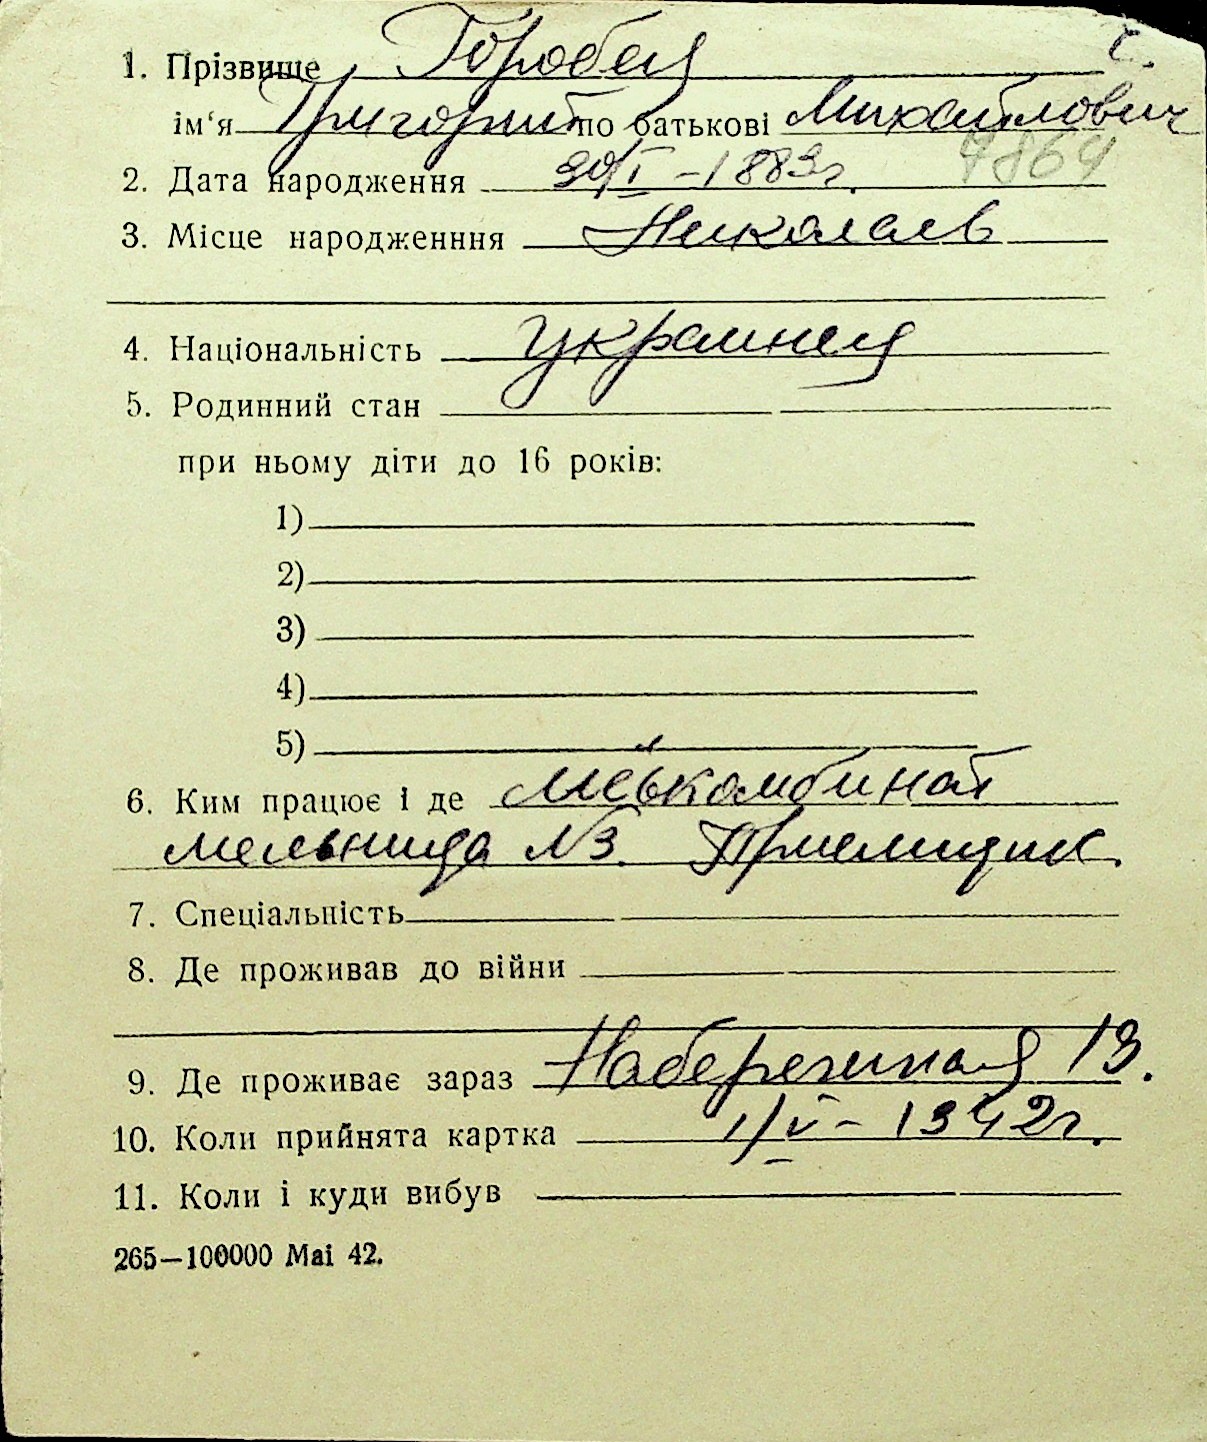 1. Прізвище Горобец ч.
ім‘я Григорий по батькові Михайлович
2. Дата народження 30/I – 1883г. 7864
3. Місце народженння Николаев
4. Національність украинец
5. Родинний стан
при ньому діти до 16 років:
1)
2)
3)
4)
5)
6. Ким працює і де Міськомбинат
мельница N3. Приемщик.
7. Спеціальність
8. Де проживав до війни
9. Де проживає зараз Набережная 13.
10. Коли прийнята картка 1/V – 1942г.
11. Коли і куди вибув
265—100000 Mai 42.